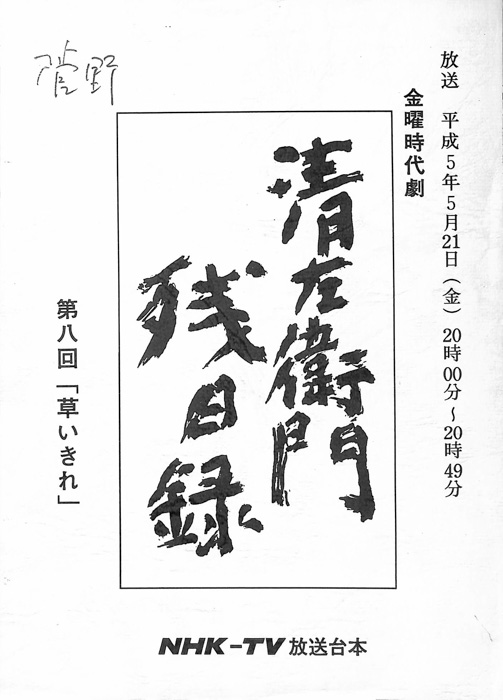 放送　平成5年5月21日（金）20時00分〜20時49分
金曜時代劇
清左衛門
残日録
第八回「草いきれ」
菅野
NHK-TV 放送台本